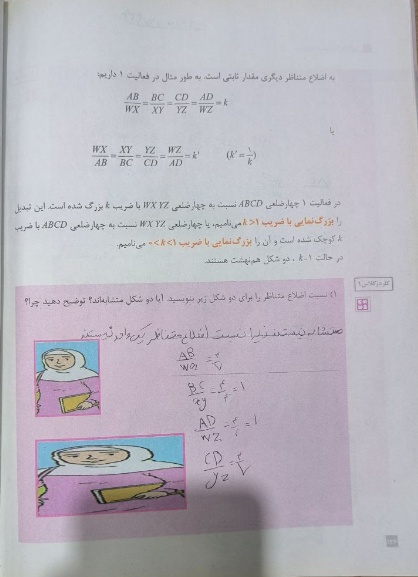 به اضلاع متناظر دیگری مقدار ثابتی است. به طور مثال در فعالیت ۱ داریم:
AB/WX = BC/XY = CD/YZ = AD/WZ = k
یا
WX/AB = XY/BC = YZ/CD = WZ/AD = k' (k' = ۱/k)
در فعالیت ۱ چهارضلعی ABCD نسبت به چهارضلعی WX YZ با ضریب k بزرگ شده است. این تبدیل
را بزرگ‌نمایی با ضریب k>۱ می‌نامیم، یا چهارضلعی WX YZ نسبت به چهارضلعی ABCD با ضریب
k کوچک شده است و آن را بزرگ‌نمایی با ضریب ۰<k<۱ می‌نامیم.
در حالت k=۱ ، دو شکل هم‌نهشت هستند.
کار در کلاس ۱
۱) نسبت اضلاع متناظر را برای دو شکل زیر بنویسید. آیا دو شکل متشابه‌اند؟ توضیح دهید چرا؟
نیست زیرا نسبت اضلاع متناظر
AB/WX = ۳/۷
BC/xy = ۳/۳ = ۱
AD/WZ = = ۱
CD/yz = ۳/۷